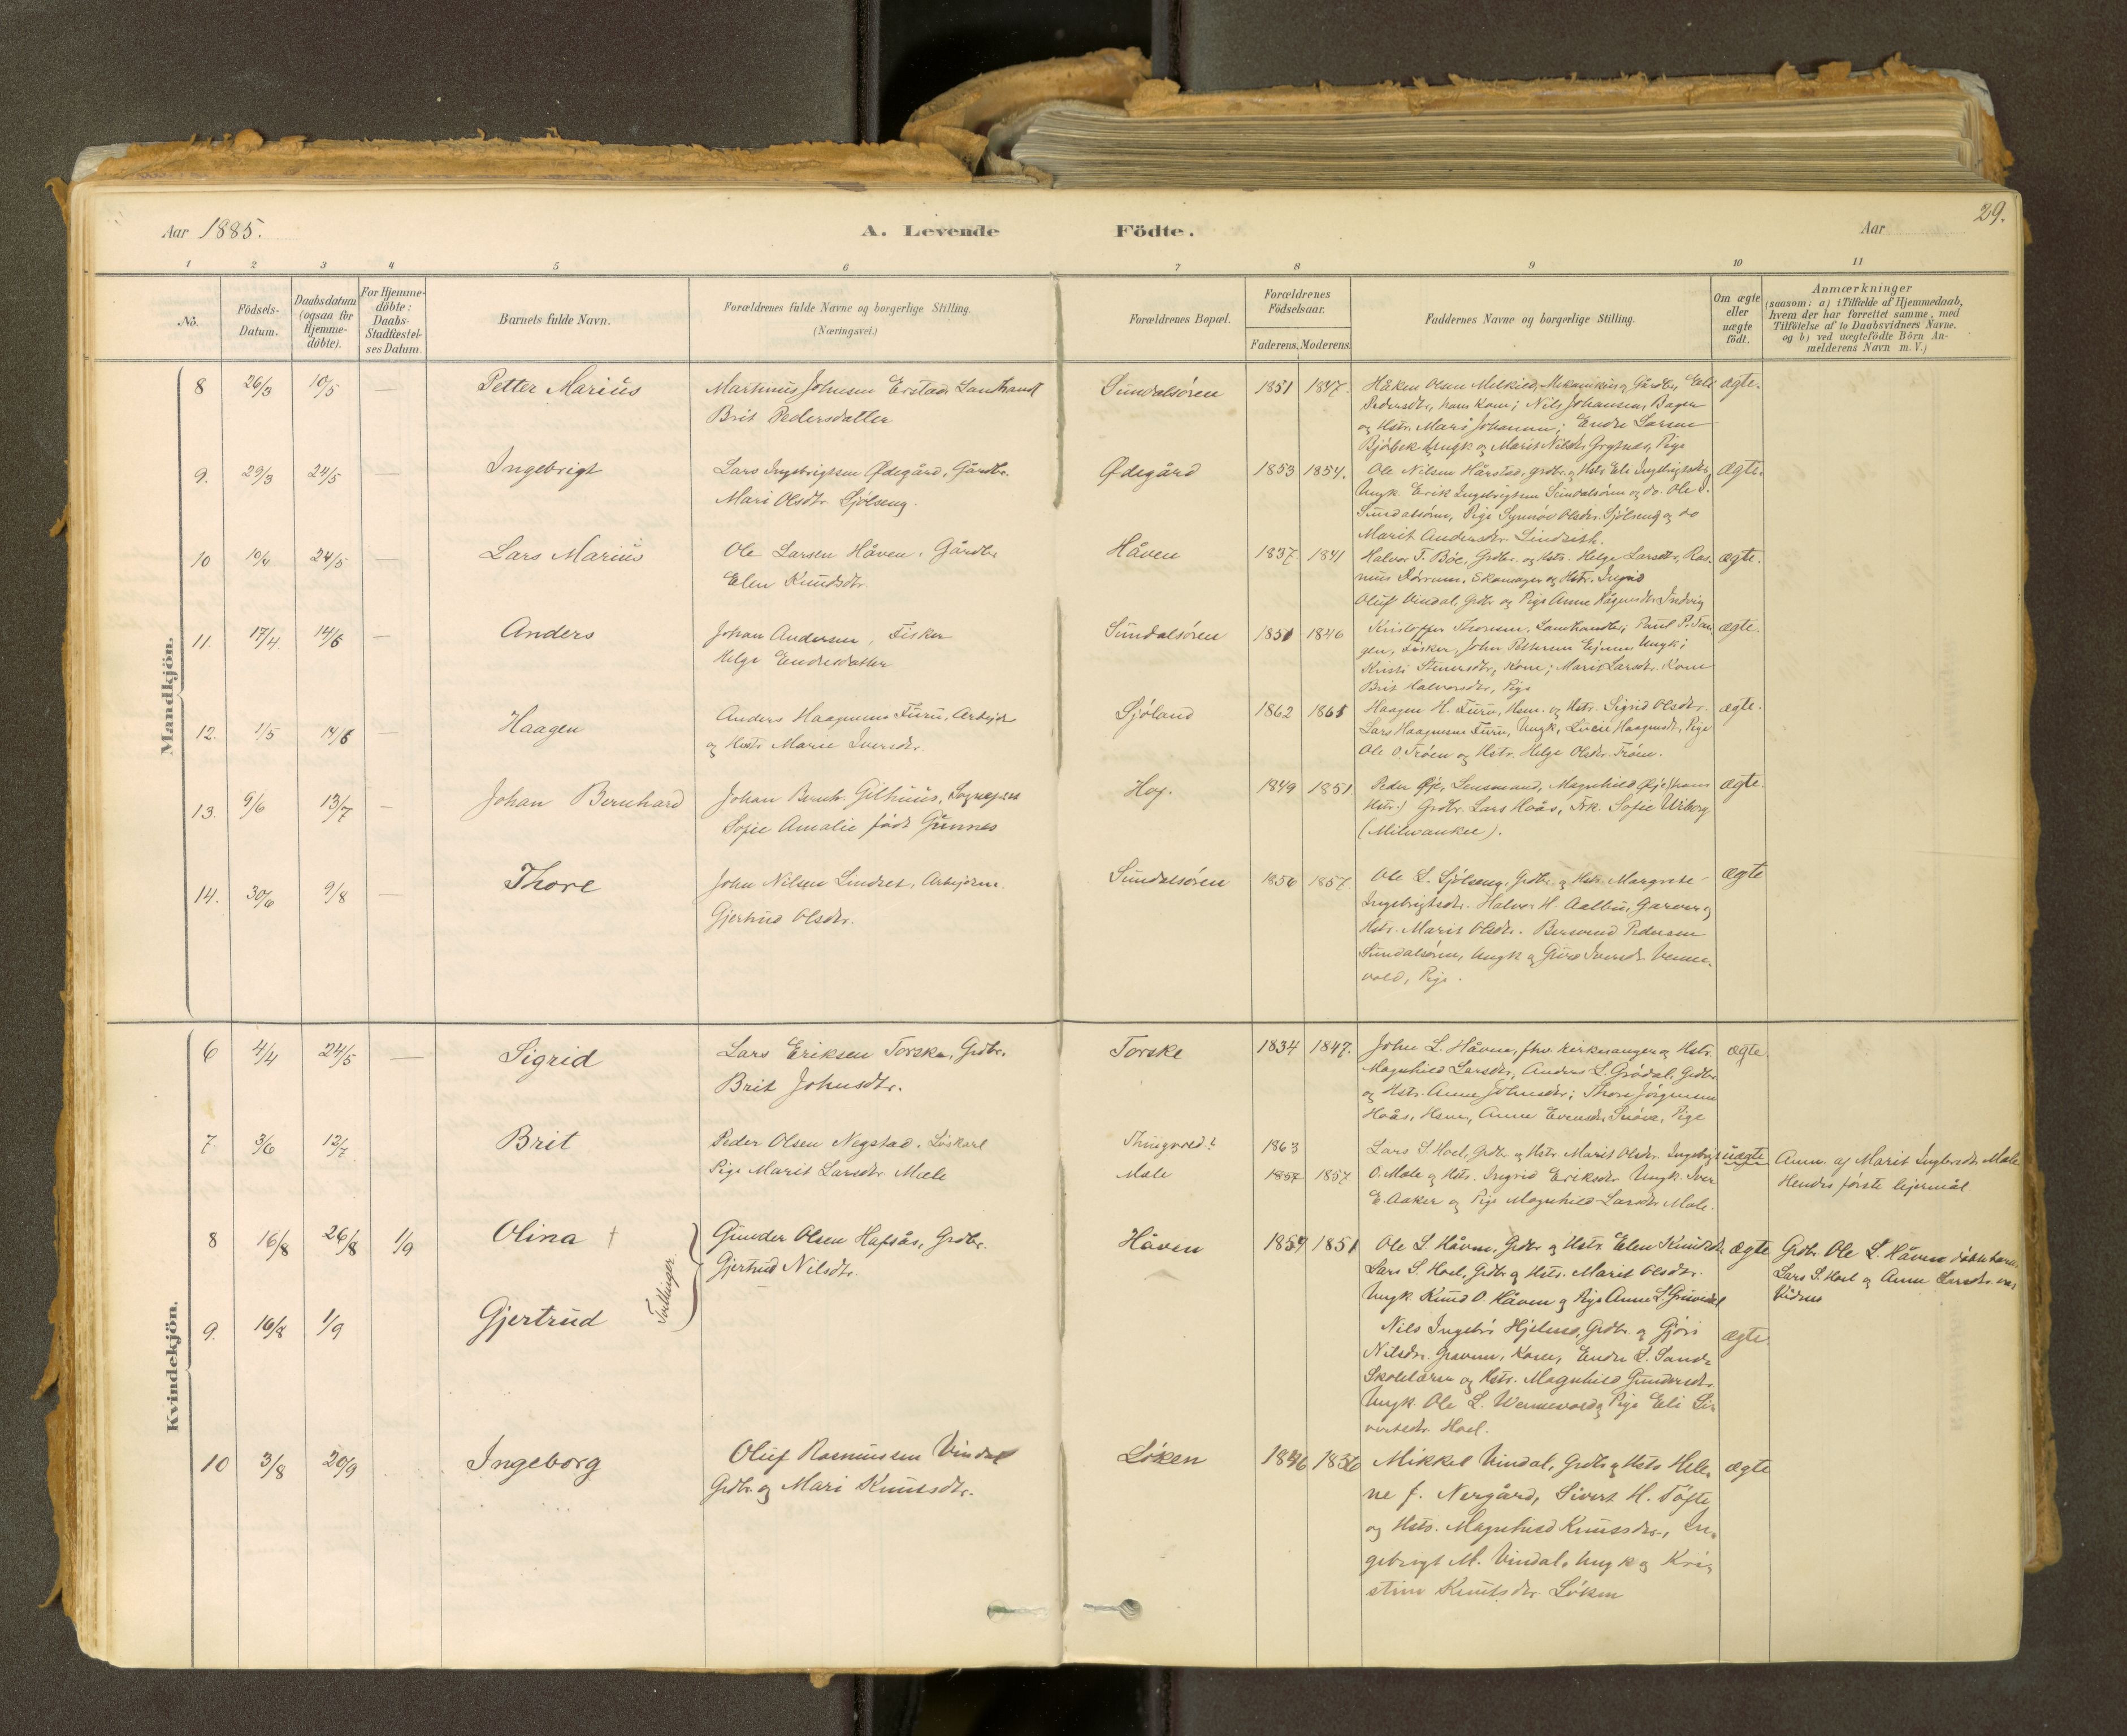 29.
Aar 1885. A. Levende Födte. Aar
1 2 3 4 5 6 7 8 9 10 11
No.
Födsels-Datum.
Daabsdatum (ogsaa for Hjemmedöbte).
For Hjemmedöbte: Daabs-Stadfæstelses Datum.
Barnets fulde Navn.
Forældrenes fulde Navne og borgerlige Stilling.
(Næringsvei.)
Forældrenes Bopæl.
Forældrenes Födselsaar.
Faderens. Moderens.
Faddernes Navne og borgerlige Stilling.
Om ægte eller uægte födt.
Anmærkninger
(saasom: a) i Tilfælde af Hjemmedaab,
hvem der har forrettet samme, med
Tilföielse af to Daabsvidners Navne.
og b) ved uægtefödte Börn An-
melderens Navn m. V.)
Mandkjön.
8 26/3 10/5 — Petter Marius
Martinus Johnsen Erstad Landhandl
Brit Pedersdatter
Sundalsören 1851 1847.
Håken Olsen Melkild, Mekanikus og Gårdbr, Eli
Pedersdtr, hans Kone; Nils Johansen, Bager
og Hstr. Mari Johansen; Endre Larsen
Bjørbek Ungk. og Marit Nilsdtr. Grytnes, Pige
ægte.
9. 29/3 24/5 — Ingebrigt
Lars Ingebrigtsen Ødegård, Gårdbr.
Mari Olsdtr. Sjölseng.
Ødegård 1853 1854.
Ole Nilsen Hårstad, grdbr. og Hstr. Eli Ingebrigtsdtr,
Ungk. Erik Ingebrigtsen Sundalsören og do. Ole I.
Sundalsören, Pige Synnöv Olsdtr. Sjölseng og do
Marit Andersdtr. Lindseth.
ægte.
10 10/4 24/5 — Lars Marius
Ole Larsen Håven, Gårdbr.
Elen Knudsdtr.
Håven 1837 1841
Halvor T. Böe, Grdbr. og Hstr. Helga Larsdtr, Ras-
mus Skomager og Hstr. Ingrid
Oluf Vindal, Grdbr. og Pige Anne
ægte.
11. 17/4 14/6 — Anders
Johan Andersen, Fisker
Helga Endresdatter
Sundalsören 1851 1846
Kristoffer Thoresen, Landhandler; Paul P. Tan-
gen, Fisker, John Pettersen Ungk;
Kristi Stenersdtr, Kone; Marit Larsdtr. Kone
Brit Halvorsdtr, Pige
ægte.
12. 1/5 14/6 — Haagen
Anders Haagensen Furu, Arbejder
og Hustr Marie Iversdtr.
Sjöland 1862 1865
Haagen H. Furu, Hsm. og Hstr. Sigrid Olsdtr.
Lars Haagensen Furu, Ungk, Lucie Haagensdtr, Pige
Ole O. Tröen og Hstr. Helga Olsdtr. Tröen.
ægte.
13. 9/6 13/7 — Johan Bernhard
Johan Bernh. Gilhuus, Sogneprest
Sofie Amalie födt Gunnes
Hoj. 1849 1851
Peder Øje, Lensmand, Magnhild Øje (hans
Hstr.) Grdbr. Lars Hoås, Frk. Sofie Wiborg
(Milwaukee).
ægte.
14. 30/6 9/8 — Thore
John Nilsen Lindset, Arbejdsm.
Gjertrud Olsdtr.
Sundalsören 1856 1857.
Ole L. Sjölseng, Grdbr. og Hstr. Margrete
Ingebrigtsdtr. Halvor H. Aalbu, Garver og
Hstr. Marit Olsdtr. Bersvend Pedersen
Sundalsören, Ungk og Guru Iversdtr. Venne-
vold, Pige.
ægte
Kvindekjön.
6 4/4 24/5 — Sigrid
Lars Eriksen Torske, Grdbr.
Brit Johnsdtr.
Torske 1834 1847.
John L. Håven, fhv. Kirkesanger og Hstr.
Magnhild Larsdtr, Anders L. Grödal, Grdbr
og Hstr. Anne Johnsdtr; Thore Jörgensen
Hoås, Hsm, Anne Evensdtr. Snöva, Pige
ægte.
7. 3/6 13/7 Brit
Peder Olsen Negstad. Löskarl
Pige Marit Larsdtr. Mæle
Thingvold?
Mæle 1863
1857 1857.
Lars S. Hoel, Grdbr. og Hstr. Marit Olsdtr. Ingebrigt
O. Mæle og Hstr. Ingrid Eriksdtr. Ungk. Iver
E. Aaker og Pige Magnhild Larsdtr. Mæle.
uægte
Anm. af Marit Mæle
Hendes förste lejermål
8 16/8 26/8 1/9 Olina †
Tvillinger.
Gunder Olsen Hafsås, Grdbr.
Gjertrud Nilsdtr.
Håven 1854 1851
Ole L. Håven, Grdbr. og Hstr. Elen Knudsdtr.
Lars S. Hoel, Grdbr. og Hstr. Marit Olsdtr.
Ungk. Knud O. Håven og Pige Anne L.
ægte
Grdbr. Ole L. Håven döbte barnet.
Lars S. Hoel og Anne Larsdtr. var
Vidner
9. 16/8 1/9 Gjertrud
Nils Ingebr. Hjelnes, Grdbr. og Gjöri
Nilsdtr. Gravem, Kone, Endre L. Sande
Skolelærer og Hstr. Magnhild Gundersdtr.
Ungk. Ole L. Wennevold og Pige Eli Si-
vertsdtr. Hoel.
ægte.
10 3/8 20/9 Ingeborg
Oluf Rasmussen Vindal
Grdbr. og Mari Knutsdtr.
Löken 1846 1836
Mikkel Vindal, Grdbr. og Hstr. Hele-
ne f. Nergård, Sivert H. Töfte
og Hstr. Magnhild Knutsdtr., In-
gebrigt M. Vindal, Ungk og Kri-
stine Knutsdtr. Löken
ægte